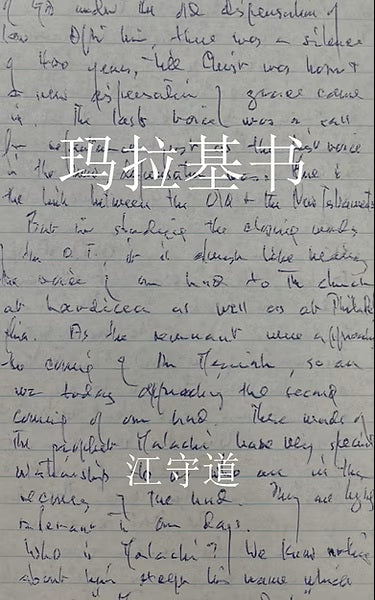 of God under the old dispensation of
law. After him, there was a silence
of 400 years, till Christ was born &
a new dispensation of grace came
in. The last voice was a call
玛拉基书
the link between the Old & the New Testaments
But in studying the closing words
of the O.T., it is always like hearing
the voice of our Lord to the church
at Laodicea as well as at Philadel
phia. As the remnant were approaching
the coming of the Messiah, so are
we today approaching the second
coming of our Lord. These words of
the prophet Malachi have very special
江守道
relationship to who are in the
recovery of the Lord. They are highly
relevant in our days.
Who is Malachi? We know nothing
about him except his name which